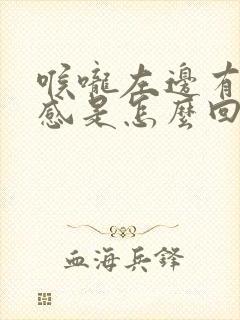 喉嚨左邊有
感是怎麼回
血海兵鋒